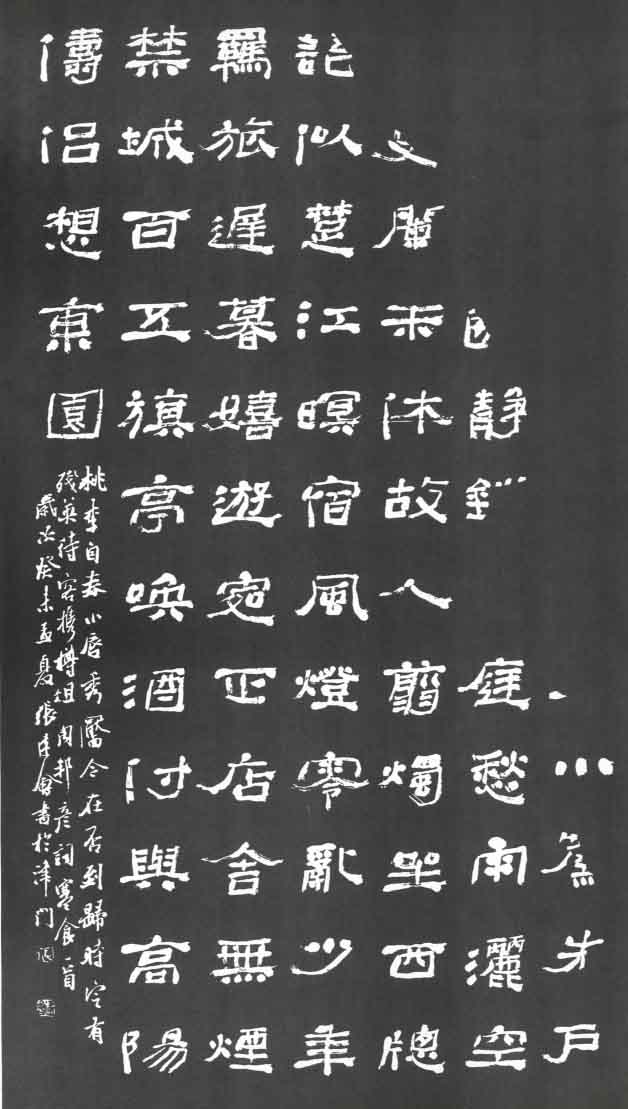 小簾朱户
静庭愁雨灑空
闌未休故人翦燭坐西牕
語似楚江暝宿風燈零亂少年
羈旅遲暮嬉遊處正店舍無煙
禁城百五旗亭喚酒付與高陽
儔侣想東園
桃李自春小唇秀靨今在否到歸時定有
残英待客携樽俎周邦彦詞寒食一首
歲次癸未孟夏張建會書於津門